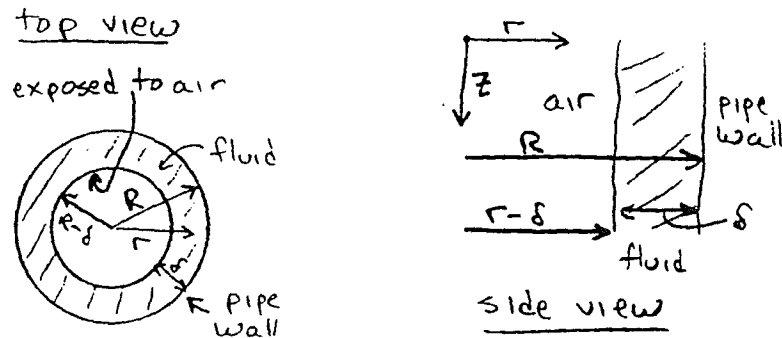 top view
exposed to air
fluid
R
R-δ
r
δ
pipe
wall
r
z
air
pipe
wall
R
r-δ
δ
fluid
side view